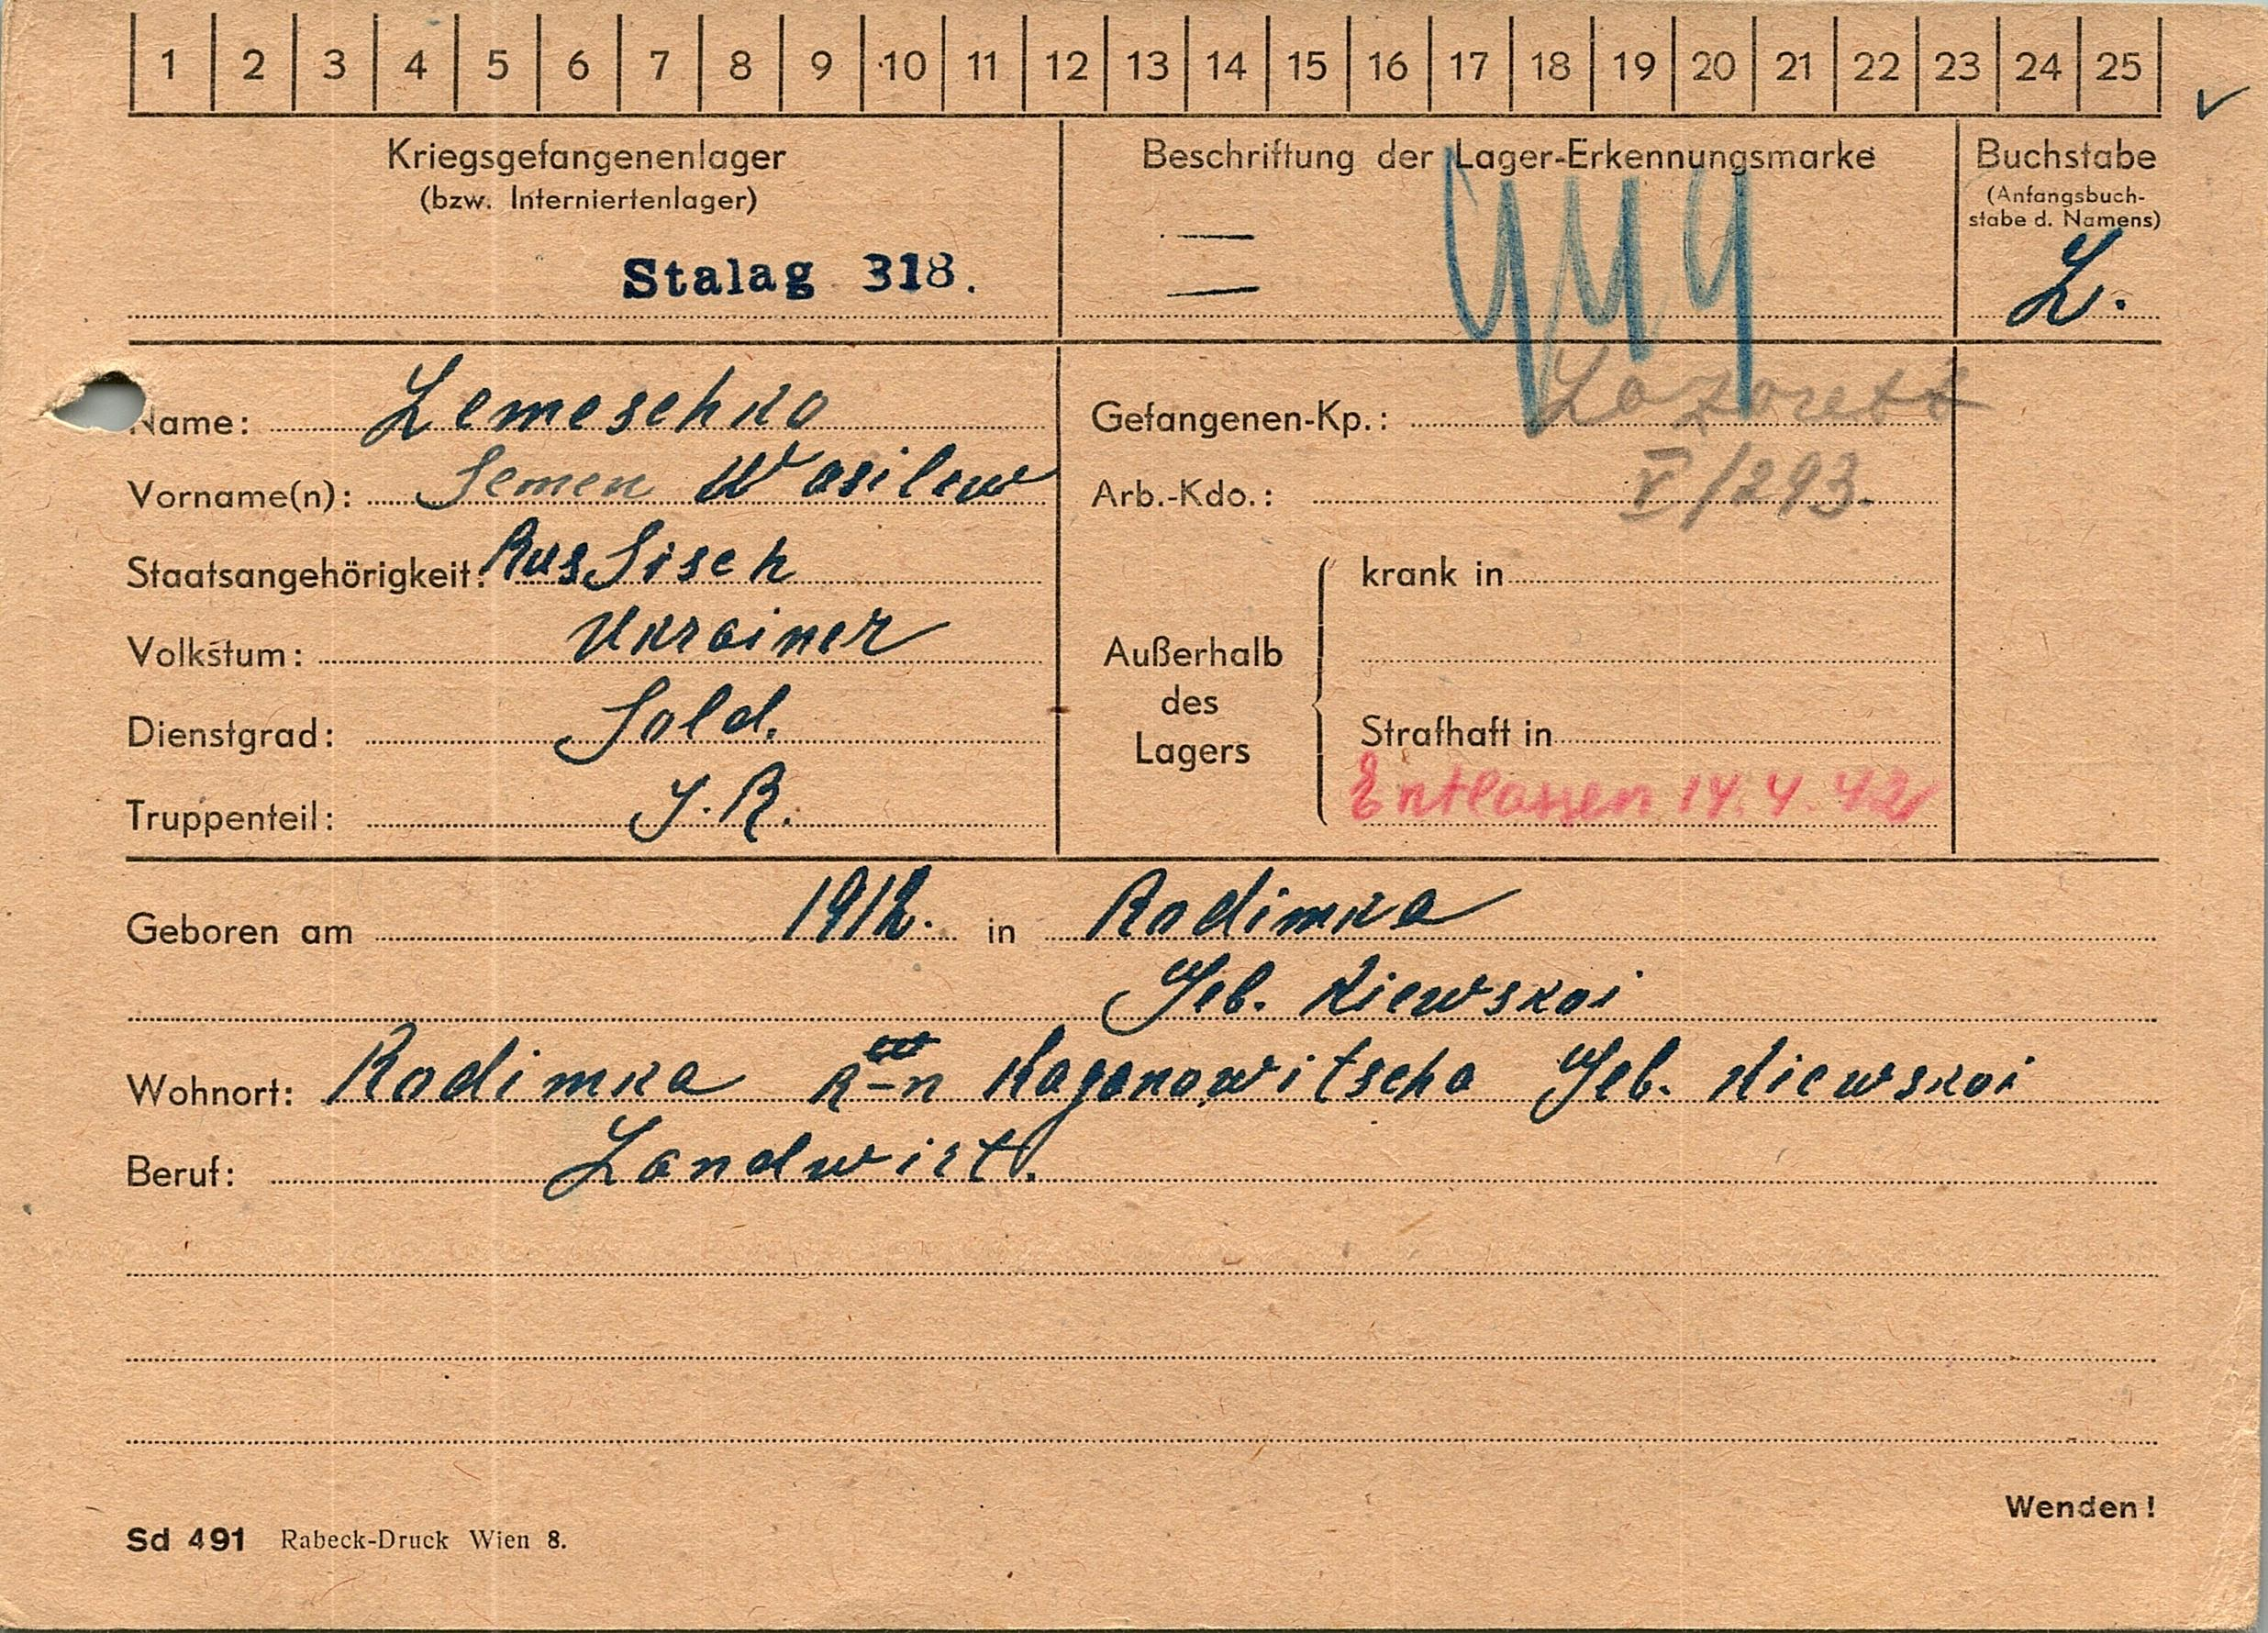 1 2 3 4 5 6 7 8 9 10 11 12 13 14 15 16 17 18 19 20 21 22 23 24 25
Kriegsgefangenenlager
(bzw. Interniertenlager)
Stalag 318.
Beschriftung der Lager-Erkennungsmarke
949
Buchstabe
(Anfangsbuch-
stabe d. Namens)
L.
Name: Lemeschko
Vorname(n): Semen Wasilew
Staatsangehörigkeit: Russisch
Volkstum: Ukrainer
Dienstgrad: Sold.
Truppenteil: J.R.
Gefangenen-Kp.: Lazarett
Arb.-Kdo.: V/293.
Außerhalb
des
Lagers
krank in
Strafhaft in
Entlassen 14.4.42
Geboren am 1912. in Radimka
Geb. Kiewskoi
Wohnort: Radimka R-n Kaganowitscha Geb. Kiewskoi
Beruf: Landwirt.
Wenden!
Sd 491 Rabeck-Druck Wien 8.